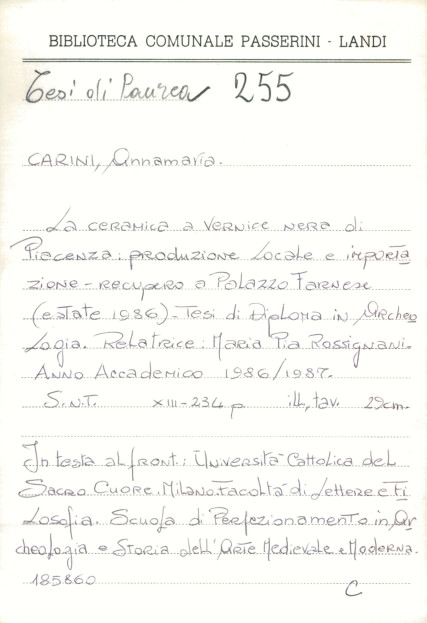 BIBLIOTECA COMUNALE PASSERINI - LANDI
Tesi di Laurea 255
CARINI, Annamaria.
La ceramica a vernice nera di
Piacenza: produzione locale e importa
zione - recupero a Palazzo Farnese
(estate 1986) - Tesi di Diploma in Archeo
logia. Relatrice: Maria Pia Rossignani -
Anno Accademico 1986/1987.
S.N.T. XIII-234 p ill, tav. 29cm.
In testa al front.: Università Cattolica del
Sacro Cuore. Milano. Facoltà di Lettere e Fi
losofia. Scuola di Perfezionamento in Ar
cheologia e Storia dell'Arte Medievale e Moderna.
185860
C